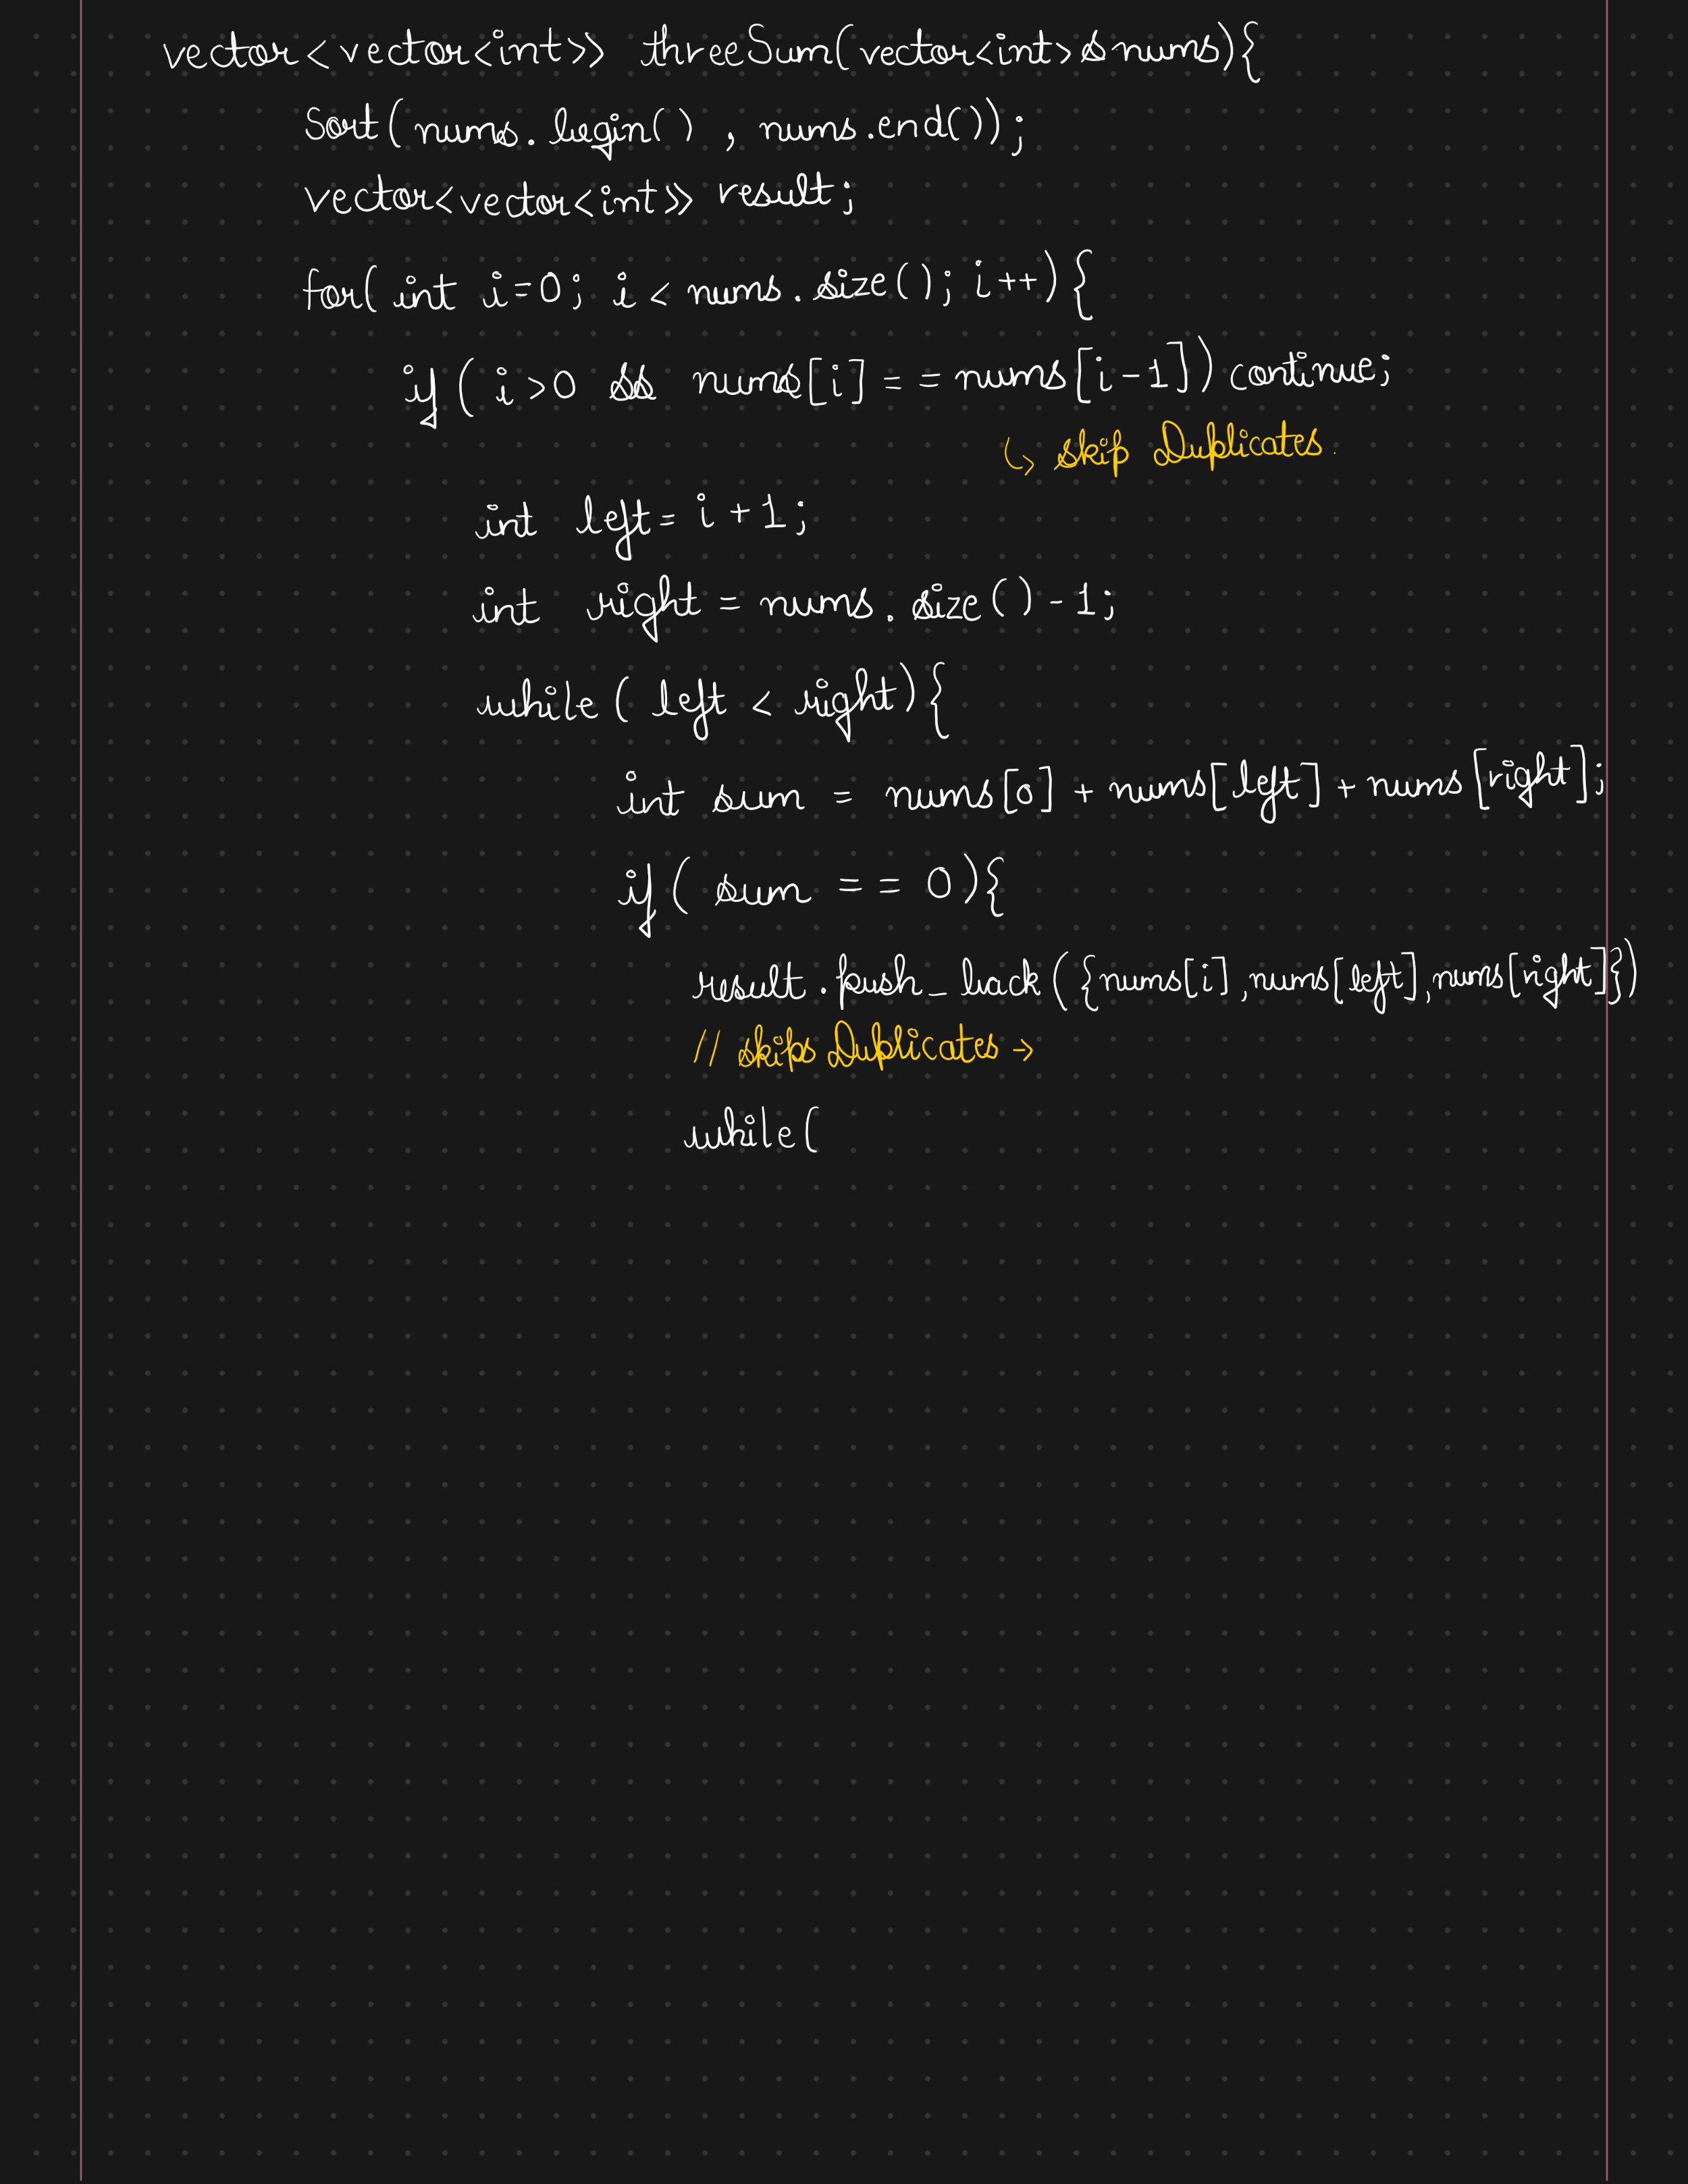 vector<vector<int>> threeSum(vector<int>& nums){
sort(nums.begin() , nums.end());
vector<vector<int>> result;
for( int i=0; i < nums.size(); i++){
if ( i>0 && nums[i] == nums[i-1]) continue;
↳ skip Duplicates.
int left= i+1;
int right = nums.size()-1;
while ( left < right){
int sum = nums[0] + nums[left] + nums[right];
if ( sum == 0){
result.push_back({nums[i],nums[left],nums[right]})
// skips Duplicates →
while(